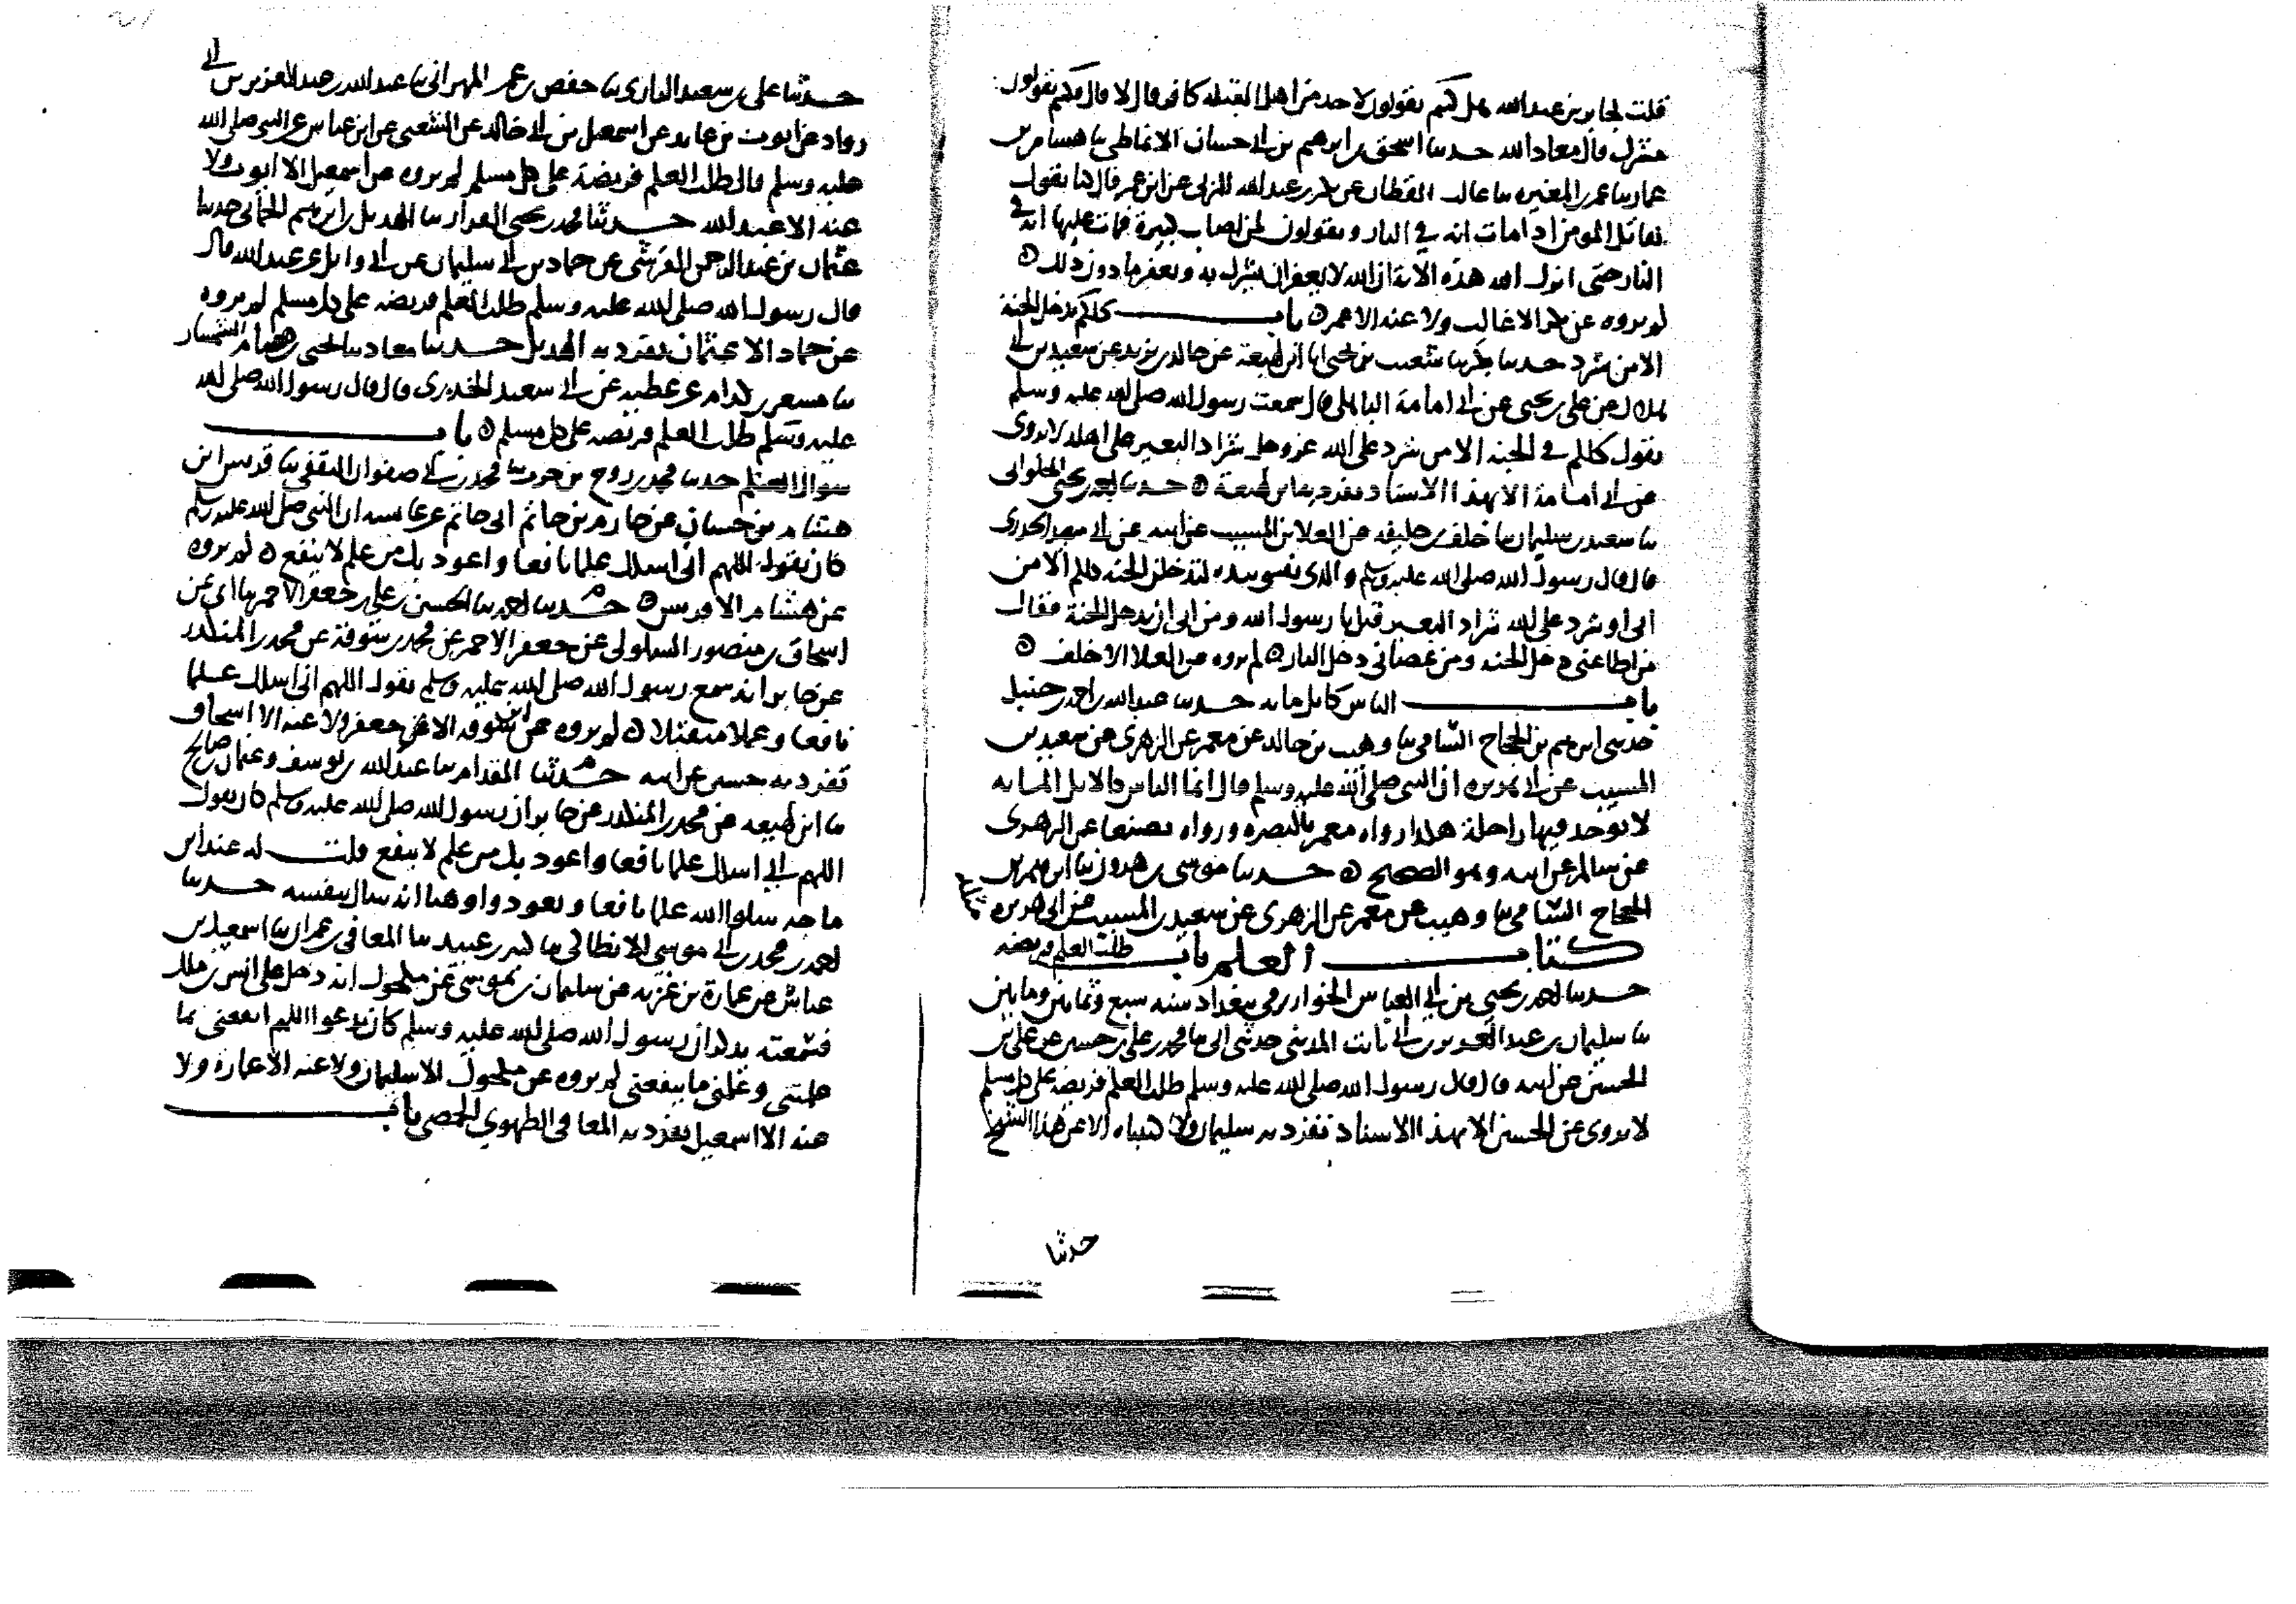 قلت لجابر بن عبدالله هل كنتم تقولون لاحد من اهل القبلة كافر قال لا قال فكنتم تقولون
مشرك قال معاذ الله حدثنا اسحق بن ابرهيم بن ابي حسان الانماطي ثنا هشام بن
عمار ثنا عمر بن المغيرة ثنا غالب القطان عن بكر بن عبدالله المزني عن ابن عمر قال كنا نقول
لقاتل المومن اذا مات انه في النار ونقولون لمن اصاب كبيرة فمات عليها انه في
النار حتى انزل الله هذه الاية ان الله لا يغفر ان يشرك به ويغفر ما دون ذلك
لم يروه عن بكر الا غالب ولا عنه الا عمر باب كلكم يدخل الجنة
الا من شرد حدثنا بكر ثنا شعيب بن يحيى انا ابن لهيعة عن خالد بن يزيد عن سعيد بن ابي
هلال عن علي بن يحيى عن ابي امامة الباهلي قال سمعت رسول الله صلى الله عليه وسلم
يقول كلكم في الجنة الا من شرد على الله عز وجل شراد البعير على اهله لا يروى
عن ابي امامة الا بهذا الاسناد تفرد به ابن لهيعة حدثنا احمد بن يحيى الحلواني
ثنا سعيد بن سليمان ثنا خلف بن خليفه عن العلا بن المسيب عن ابيه عن ابي سعيد الخدري
قال قال رسول الله صلى الله عليه وسلم والذي نفسي بيده لتدخلن الجنة كلكم الا من
ابى او شرد على الله شراد البعير قيل يا رسول الله ومن ابى ان يدخل الجنة فقال
من اطاعني دخل الجنة ومن عصاني دخل النار لم يروه عن العلا الا خلف
باب الناس كابل مايه حدثنا عبدالله بن احمد بن حنبل
حدثني ابرهيم بن الحجاج الشامي ثنا وهيب بن خالد عن معمر عن الزهري عن سعيد بن
المسيب عن ابي هريره ان النبي صلى الله عليه وسلم قال انما الناس كالابل الماية
لا يوجد فيها راحلة هكذا رواه معمر بالبصرة ورواه بصنعا عن الزهري
عن سالم عن ابيه وهو الصحيح حدثنا موسى بن هرون ثنا ابرهيم بن
الحجاج الشامي ثنا وهيب عن معمر عن الزهري عن سعيد بن المسيب عن ابي هريره
كتاب العلم باب طلب العلم فريضه
حدثنا احمد بن يحيى بن ابي العباس الخوارزمي ببغداد سنة سبع وثمانين ومايتين
ثنا سليمان بن عبد العزيز بن ابي ثابت المديني حدثني ابي ثنا محمد بن علي بن حسين عن علي بن
الحسين عن ابيه قال قال رسول الله صلى الله عليه وسلم طلب العلم فريضة على كل مسلم
لا يروى عن الحسين الا بهذا الاسناد تفرد به سليمان ولا كتبناه الا عن هذا الشيخ
حدثنا
حدثنا علي بن سعيد الرازي ثنا حفص بن عمر المهراني ثنا عبدالله بن عبد العزيز بن ابي
رواد عن ايوب بن عايد عن اسمعيل بن ابي خالد عن الشعبي عن ابن عباس عن النبي صلى الله
عليه وسلم قال طلب العلم فريضة على كل مسلم لم يروه عن اسمعيل الا ايوب ولا
عنه الا عبدالله حدثنا محمد بن يحيى القزاز ثنا الهذيل بن ابرهيم الحماني حدثنا
عثمان بن عبد الرحمن القرشي عن حماد بن ابي سليمان عن ابي وايل عن عبدالله قال
قال رسول الله صلى الله عليه وسلم طلب العلم فريضه على كل مسلم لم يروه
عن حماد الا عثمان تفرد به الهذيل حدثنا معاذ ثنا يحيى بن هاشم السمسار
ثنا مسعر بن كدام عن عطيه عن ابي سعيد الخدري قال قال رسول الله صلى الله
عليه وسلم طلب العلم فريضه على كل مسلم باب
سوال العلم حدثنا محمد بن روح بن حرب ثنا محمد بن ابي صفوان الثقفي ثنا قريش بن
هشام بن حسان عن حازم بن حاتم ابي حاتم عن عايشه ان النبي صلى الله عليه وسلم
كان يقول اللهم اني اسالك علما نافعا واعوذ بك من علم لا ينفع لم يروه
عن هشام الا قريش حدثنا احمد ثنا الحسين بن علي بن جعفر الاحمر ثنا ابي عن
اسحاق بن منصور السلولي عن جعفر الاحمر عن محمد بن سوقة عن محمد بن المنكدر
عن جابر انه سمع رسول الله صلى الله عليه وسلم يقول اللهم اني اسالك علما
نافعا وعملا متقبلا لم يروه عن ابن سوقه الا جعفر ولا عنه الا اسحاق
تفرد به حسين عن ابيه حدثنا المقدام ثنا عبدالله بن يوسف وعثمان بن صالح
ثنا ابن لهيعه عن محمد بن المنكدر عن جابر ان رسول الله صلى الله عليه وسلم كان يقول
اللهم اني اسالك علما نافعا واعوذ بك من علم لا ينفع قلت له عند ابن
ماجه سلوا الله علما نافعا وتعوذوا وهنا انه سال بنفسه حدثنا
احمد بن محمد بن ابي موسى الانطاكي ثنا كثير بن عبيد ثنا المعافى بن عمران ثنا اسمعيل بن
عياش عن عمارة بن غزيه عن سليمان بن موسى عن مكحول انه دخل على انس بن مالك
فسمعته يذكر ان رسول الله صلى الله عليه وسلم كان يدعو اللهم انفعني بما
علمتني وعلمني ما ينفعني لم يروه عن مكحول الا سليمان ولا عنه الا عمارة ولا
عنه الا اسمعيل تفرد به المعافى الظهوي الحمصي باب